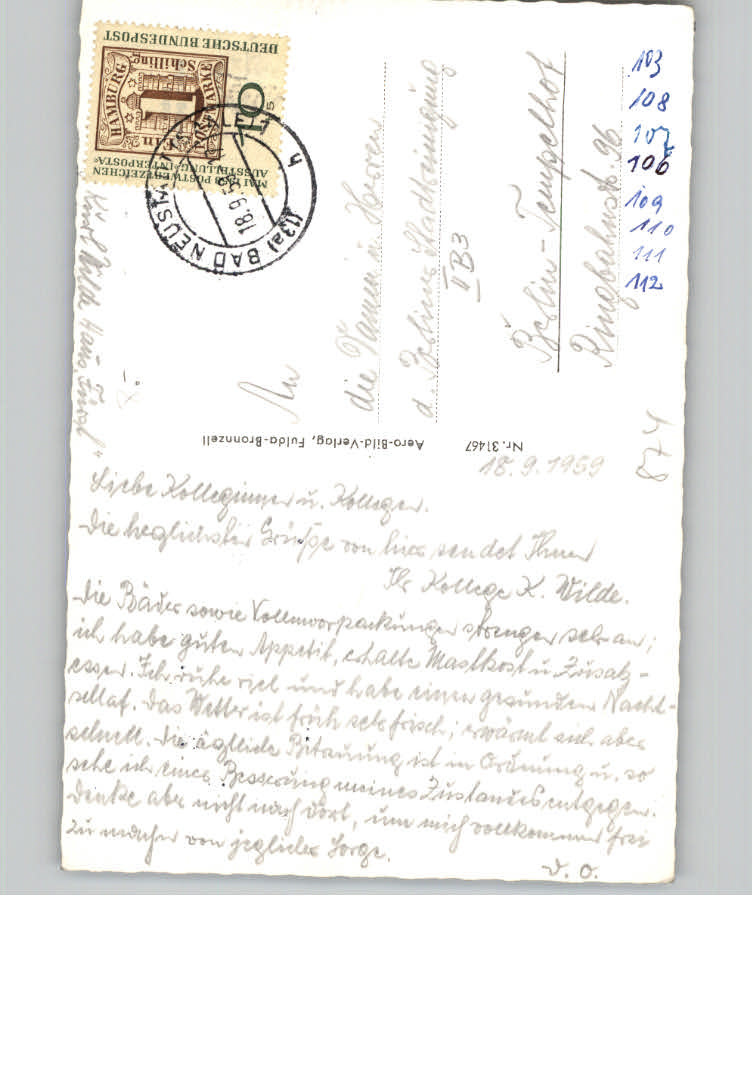 DEUTSCHE BUNDESPOST
HAMBURG
Schilling
POSTMARKE
10
5
MAI 1959 POSTWERTZEICHEN
AUSSTELLUNG „INTERPOSTA“
(13a) BAD NEUST
18.9.59
h
Wilde Haus
An
die Damen u. Herren
d. Berliner Stadtreinigung
II B3
Berlin-Tempelhof
Ringbahnstr. 96
103
108
107
106
109
110
111
112
874
Aero-Bild-Verlag, Fulda-Bronnzell
Nr. 31467
18.9.1959
Liebe Kolleginnen u. Kollegen.
Die herzlichsten Grüße von hier sendet Ihnen
Ihr Kollege K. Wilde.
Die Bäder sowie strengen sehr an;
ich habe guten Appetit, erhalte Mastkost u. Zusatz-
essen. Ich ruhe viel und habe einen gesunden Nacht-
schlaf. Das Wetter ist früh sehr frisch; erwärmt sich aber
schnell. Die ist in Ordnung u. so
sehe ich einer Besserung meines Zustandes entgegen.
Denke aber nicht nach dort, um mich vollkommen frei
zu machen von jeglicher Sorge.
D. O.